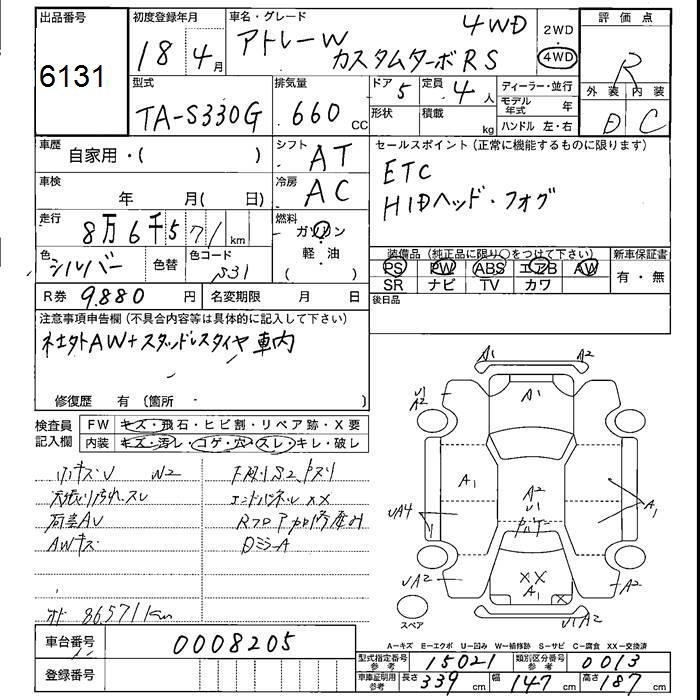 出品番号
6131
初度登録年月
18 年 4 月
車名・グレード
4WD
アトレーW
カスタムターボRS
2WD
4WD
評価点
R
外装 内装
D C
型式
TA-S330G
排気量
660 cc
ドア 5
形状
定員 4 人
積載 kg
ディーラー・並行
モデル年式 年
ハンドル 左・右
車歴
自家用・( )
シフト AT
セールスポイント(正常に機能するものに限ります)
ETC
HIDヘッド・フォグ
車検
年 月( 日)
冷房 AC
走行
8万6千571 km
燃料
ガソリン
軽・油
( )
色 シルバー
色替
色コード S31
装備品(純正品に限り○をつけて下さい)
PS PW ABS エアB AW
SR ナビ TV カワ
新車保証書
有・無
R券 9.880 円
名変期限 月 日
後日品
注意事項申告欄(不具合内容等は具体的に記入して下さい)
社外AW+スタッドレスタイヤ車内
修復歴 有(箇所 )
検査員記入欄
FW キズ・飛石・ヒビ割・リペア跡・X要
内装 キズ・汚レ・コゲ・穴・スレ・キレ・破レ
小キズU W2
天張り汚れ、スレ
荷室AU
AWキズ
エンドパネルXX
DミラーA
86571km
A1 A2
U1
A2
A1
A1
A2
U1
UA4
A1
UA2
XX
A1
A2
U1A2
スペア
A=キズ E=エクボ U=凹み W=補修跡 S=サビ C=腐食 XX=交換済
車台番号 0008205
登録番号
型式指定番号 参考 15021
類別区分番号 参考 0013
車庫証明用 参考 長さ 339 cm 幅 147 cm 高さ 187 cm